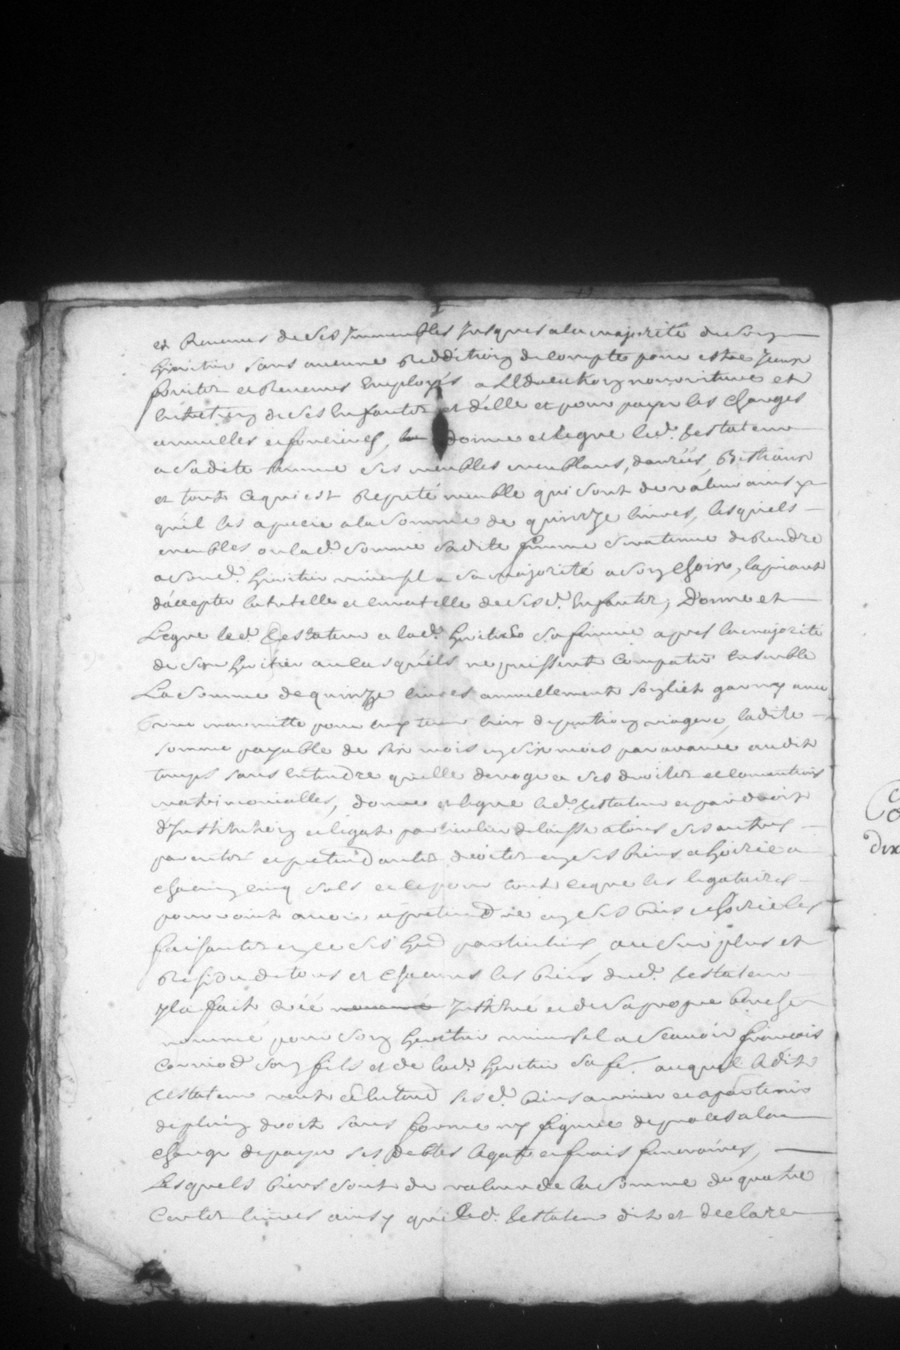 et Revenus de ses Immeubles Jusques a la majorité de son
heritier sans aucune Reddition de compte pour estre Iceux
fruits et Revenus Employés a LEducation nourriture et
Entretien de ses Enfants et d'elle et pour payer les charges
annuelles et foncieres, donne et legue led. testateur
a sadite femme ses meubles meublans, denrées, Bestiaux
et tout ce qui est Reputé meuble qui sont de valeur ainsy
qu'il les apecie a la somme de quinze livres, lesquels
meubles ou lad. somme sadite femme sera tenue de Rendre
a sond. heritier universel a sa majorité a son choix, la priant
d'accepter la tutelle et curatelle de sesd. Enfants, Donne et
Legue led. testateur a lad. sa femme apres la majorité
de son heritier au cas qu'ils ne puissent compatir Ensemble
La somme de quinze livres annuellement son lict garny avec
une marmitte pour luy tenir lieu de pention viagere, ladite
somme payable de six mois en six mois par avance audit
temps sans entendre qu'elle deroge a ses droits et conventions
matrimonialles, donne et legue led. testateur et par droit
d'Institution et legat particulier delaisse a tous ses autres
parents et pretendants droits en ses biens et hoirie a
chacun cinq sols et ce pour tout ce que les legataires
pourroint avoir et pretendre en ses biens et hoirie les
faisants en ce ses hers particuliers, au surplus et
Residu de tous et chacuns les biens dud. testateur
yl a fait créé nommé Institué et de sa propre bouche
nommé pour son heritier universel a scavoir françois
son fils et de lad. sa fe. auquel ledit
testateur veut et Entend sesd. biens arriver et apartenir
de plein droit sans forme ny figure de proces a la
charge de payer ses debtes legats et frais funeraires,
Lesquels biens sont de valeur de la somme de quatre
Cents livres ainsy que led. testateur dit et declare